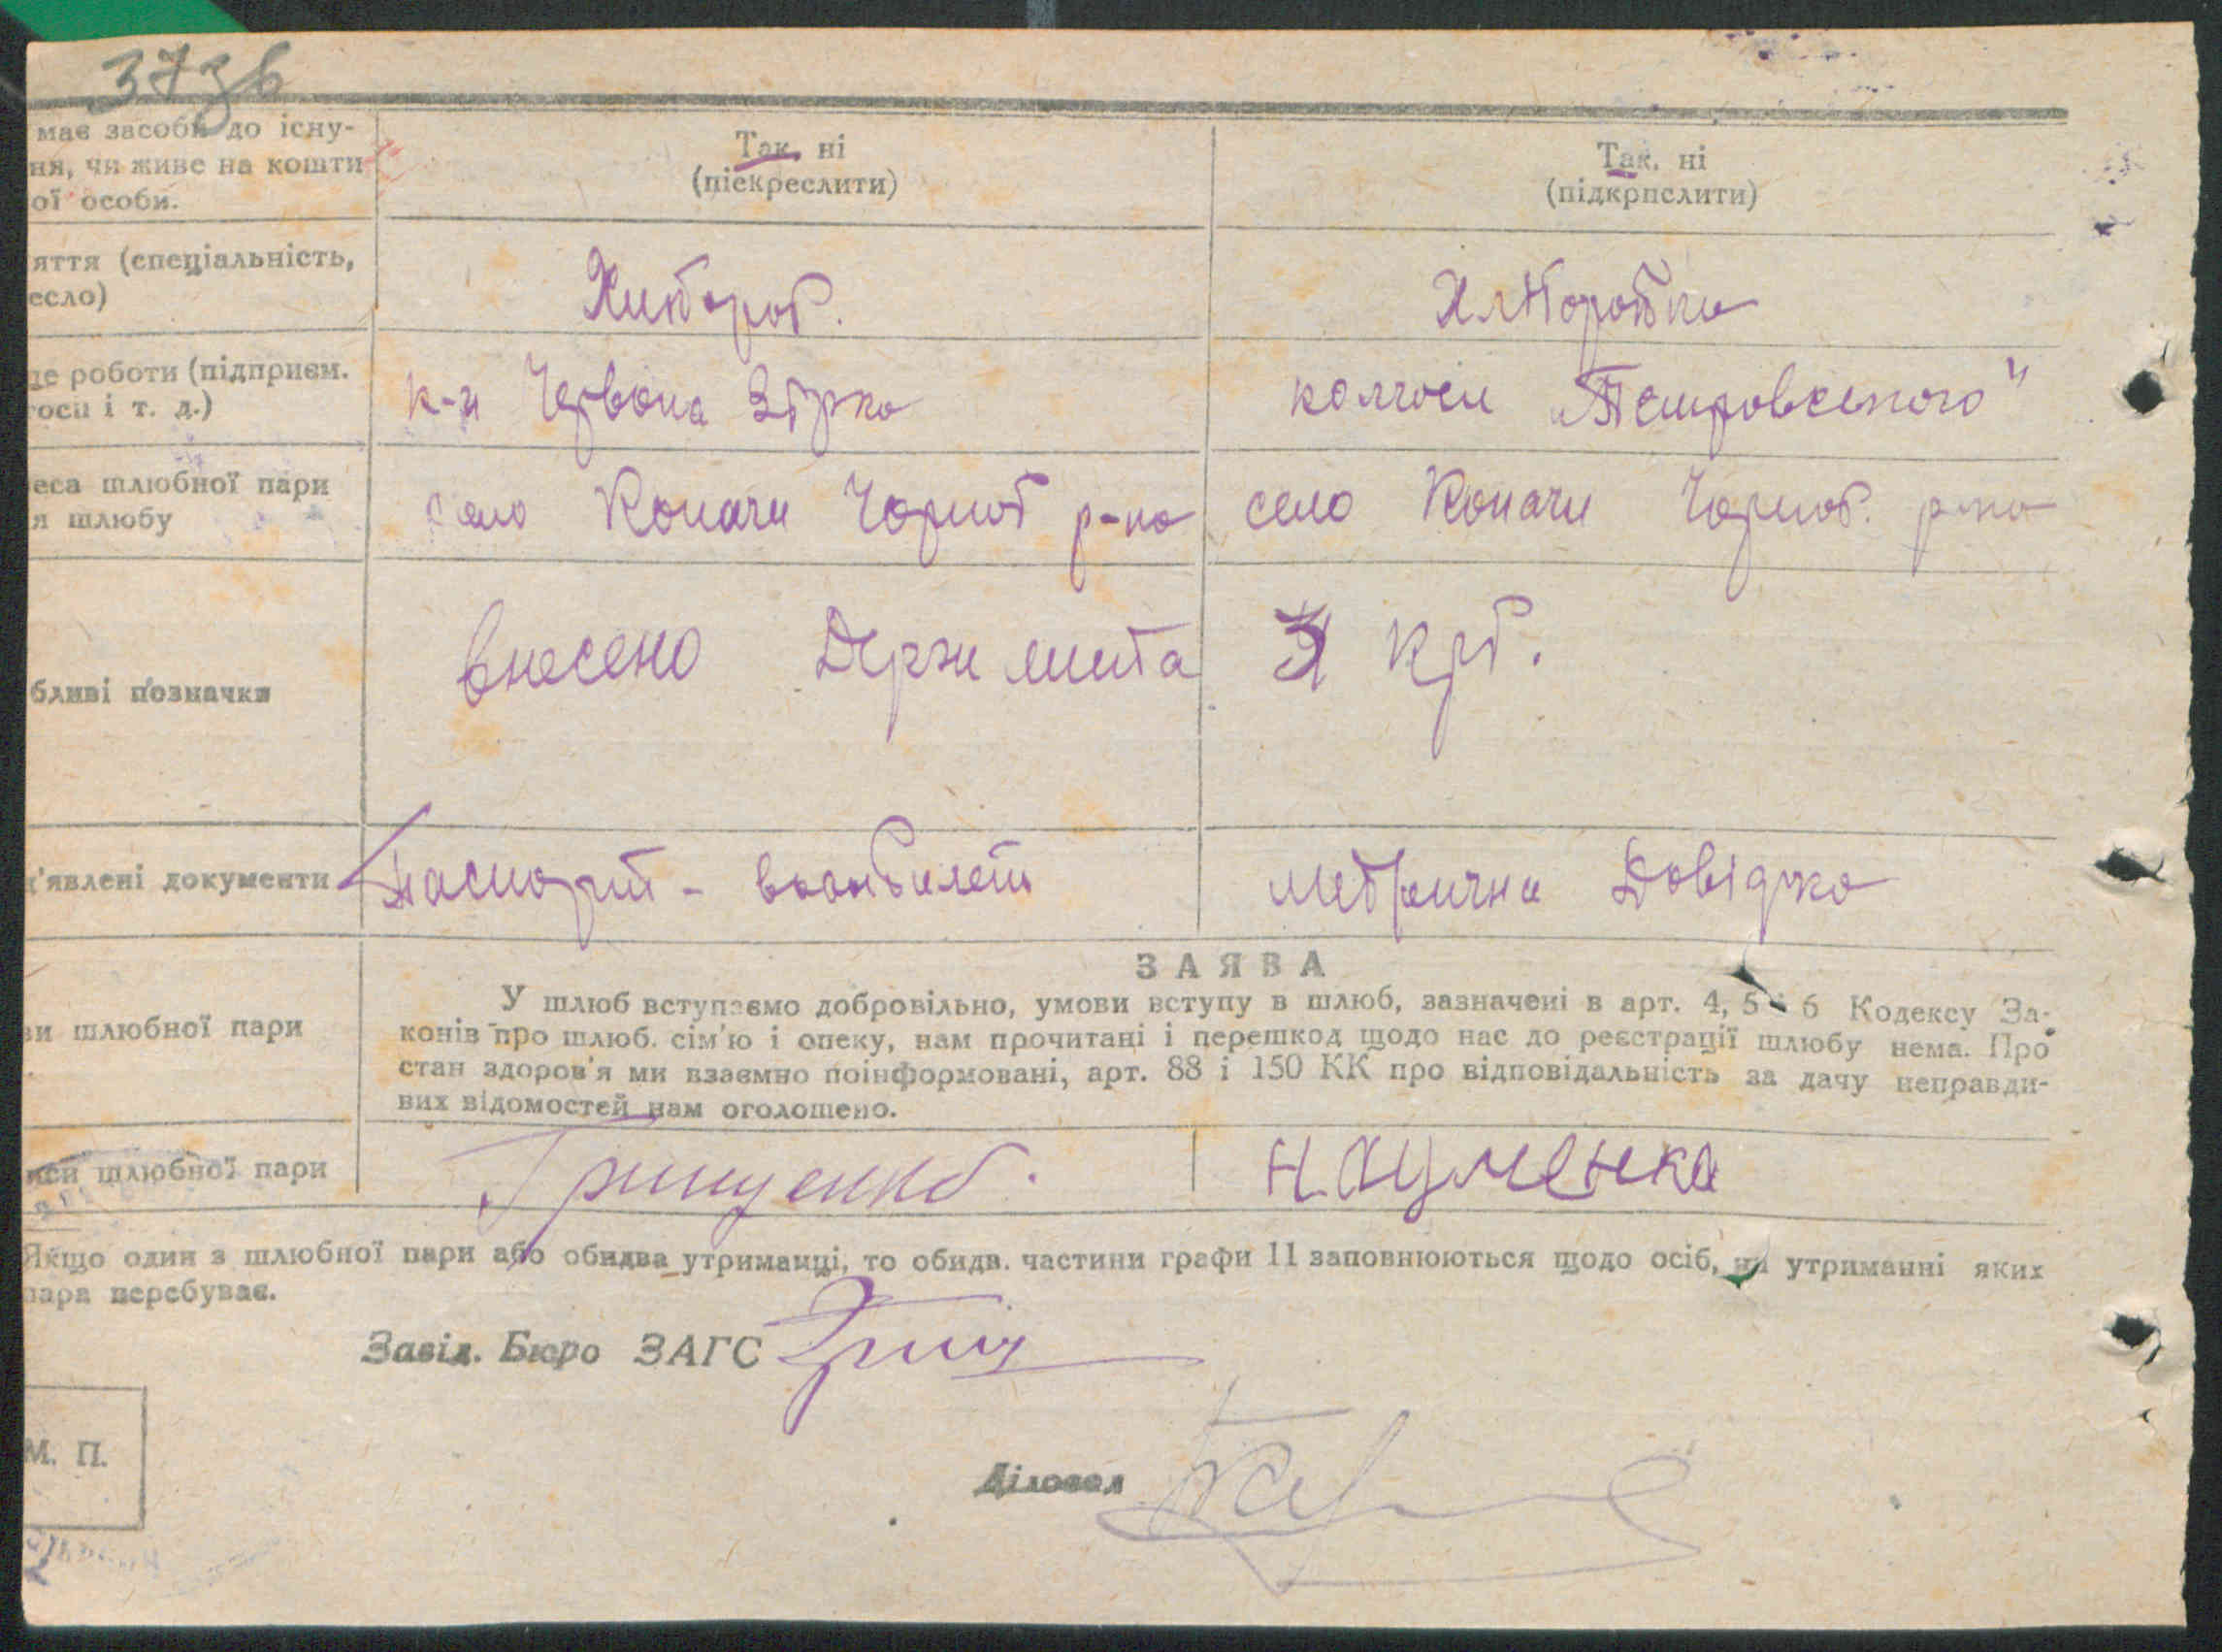 373б
має засоби до існу-
ня, чи живе на кошти
ої особи.
Так, ні
(піекреслити)
Так. ні
(підкрпслити)
яття (спеціальність,
есло)
Хлібороб.
Хліборобка
це роботи (підприєм.
госп і т. д.)
к-п Червона Зірка
колгосп „Петровського"
еса шлюбної пари
я шлюбу
село Копачи Чорноб р-на
село Копачи Чорноб. р-на
бливі позначки
внесено Держ мита 3 крб.
'явлені документи
Паспорт - воєнбилет
метрична Довідка
ЗАЯВА
У шлюб вступаємо добровільно, умови вступу в шлюб, зазначені в арт. 4, 5 і 6 Кодексу За-
конів про шлюб. сім'ю і опеку, нам прочитані і перешкод щодо нас до реєстрації шлюбу нема. Про
стан здоров'я ми взаємно поінформовані, арт. 88 і 150 КК про відповідальність за дачу неправди-
вих відомостей нам оголошено.
ви шлюбної пари
иси шлюбної пари
Грищенко.
Науменка
Якщо один з шлюбної пари або обидва утриманці, то обидв. частини графи 11 заповнюються щодо осіб, на утриманні яких
пара перебуває.
Завід. Бюро ЗАГС
М. П.
Діловод